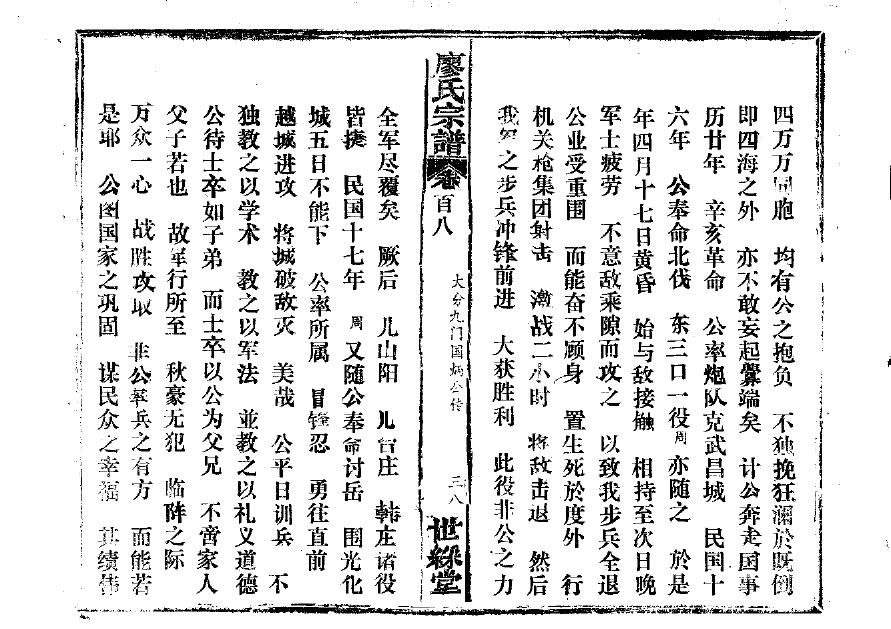 四万万同胞　均有公之抱负　不独挽狂澜於既倒
即四海之外　亦不敢妄起衅端矣　计公奔走国事
历廿年　辛亥革命　公率炮队克武昌城　民国十
六年　公奉命北伐　东三口一役周亦随之　於是
年四月十七日黄昏　始与敌接触　相持至次日晚
军士疲劳　不意敌乘隙而攻之　以致我步兵全退
公业受重围　而能奋不顾身　置生死於度外　行
机关枪集团射击　激战二小时　将敌击退　然后
我军之步兵冲锋前进　大获胜利　此役非公之力
廖氏宗谱　卷百八　大分九门国炳公传　三八　世綵堂
全军尽覆矣　厥后　儿山阳　儿官庄　韩庄诸役
皆捷　民国十七年　周又随公奉命讨岳　围光化
城五日不能下　公率所属　冒锋忍　勇往直前
越城进攻　将城破敌灭　美哉　公平日训兵　不
独教之以学术　教之以军法　並教之以礼义道德
公待士卒如子弟　而士卒以公为父兄　不啻家人
父子若也　故军行所至　秋豪无犯　临阵之际
万众一心　战胜攻取　非公率兵之有方　而能若
是耶　公图国家之巩固　谋民众之幸福　其绩伟